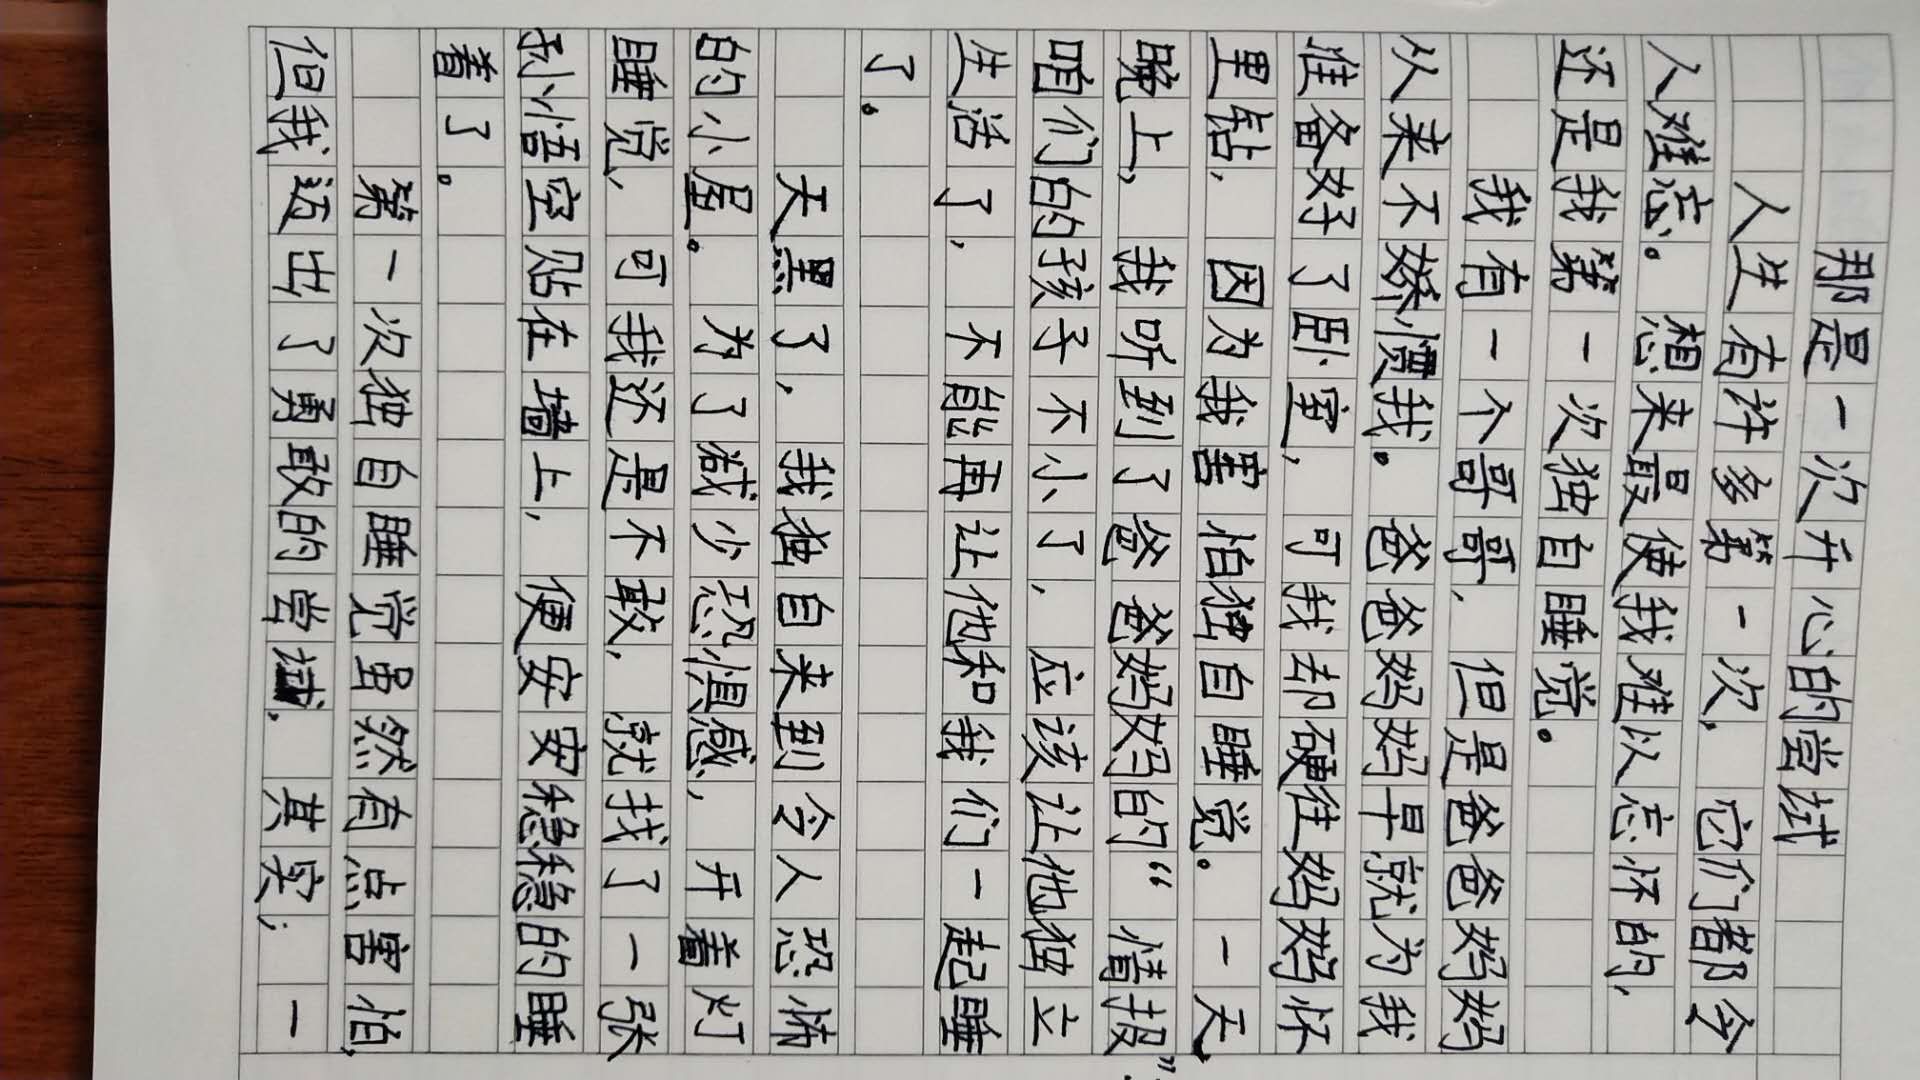 那是一次开心的尝试
人生有许多第一次，它们都令
人难忘。想来最使我难以忘怀的，
还是我第一次独自睡觉。
我有一个哥哥，但是爸爸妈妈
从来不娇惯我。爸爸妈妈早就为我
准备好了卧室，可我却硬往妈妈怀
里钻，因为我害怕独自睡觉。一天
晚上，我听到了爸爸妈妈的“情报”：
咱们的孩子不小了，应该让他独立
生活了，不能再让他和我们一起睡
了。
天黑了，我独自来到令人恐怖
的小屋。为了减少恐惧感，开着灯
睡觉，可我还是不敢，就找了一张
孙悟空贴在墙上，便安安稳稳的睡
着了。
第一次独自睡觉虽然有点害怕，
但我迈出了勇敢的尝试，其实，一